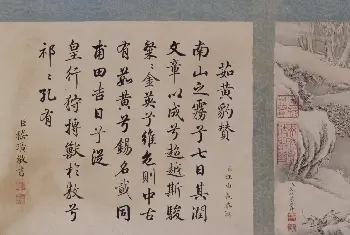 茹黃豹贊
南山之霧兮七日其潤
文章以成兮超越斯駿
粲〻金英兮維色則中古
有茹黃兮錫名載同
甫田吉日兮從
皇行狩搏獸於敖兮
祁〻孔有
臣嵇璜敬書